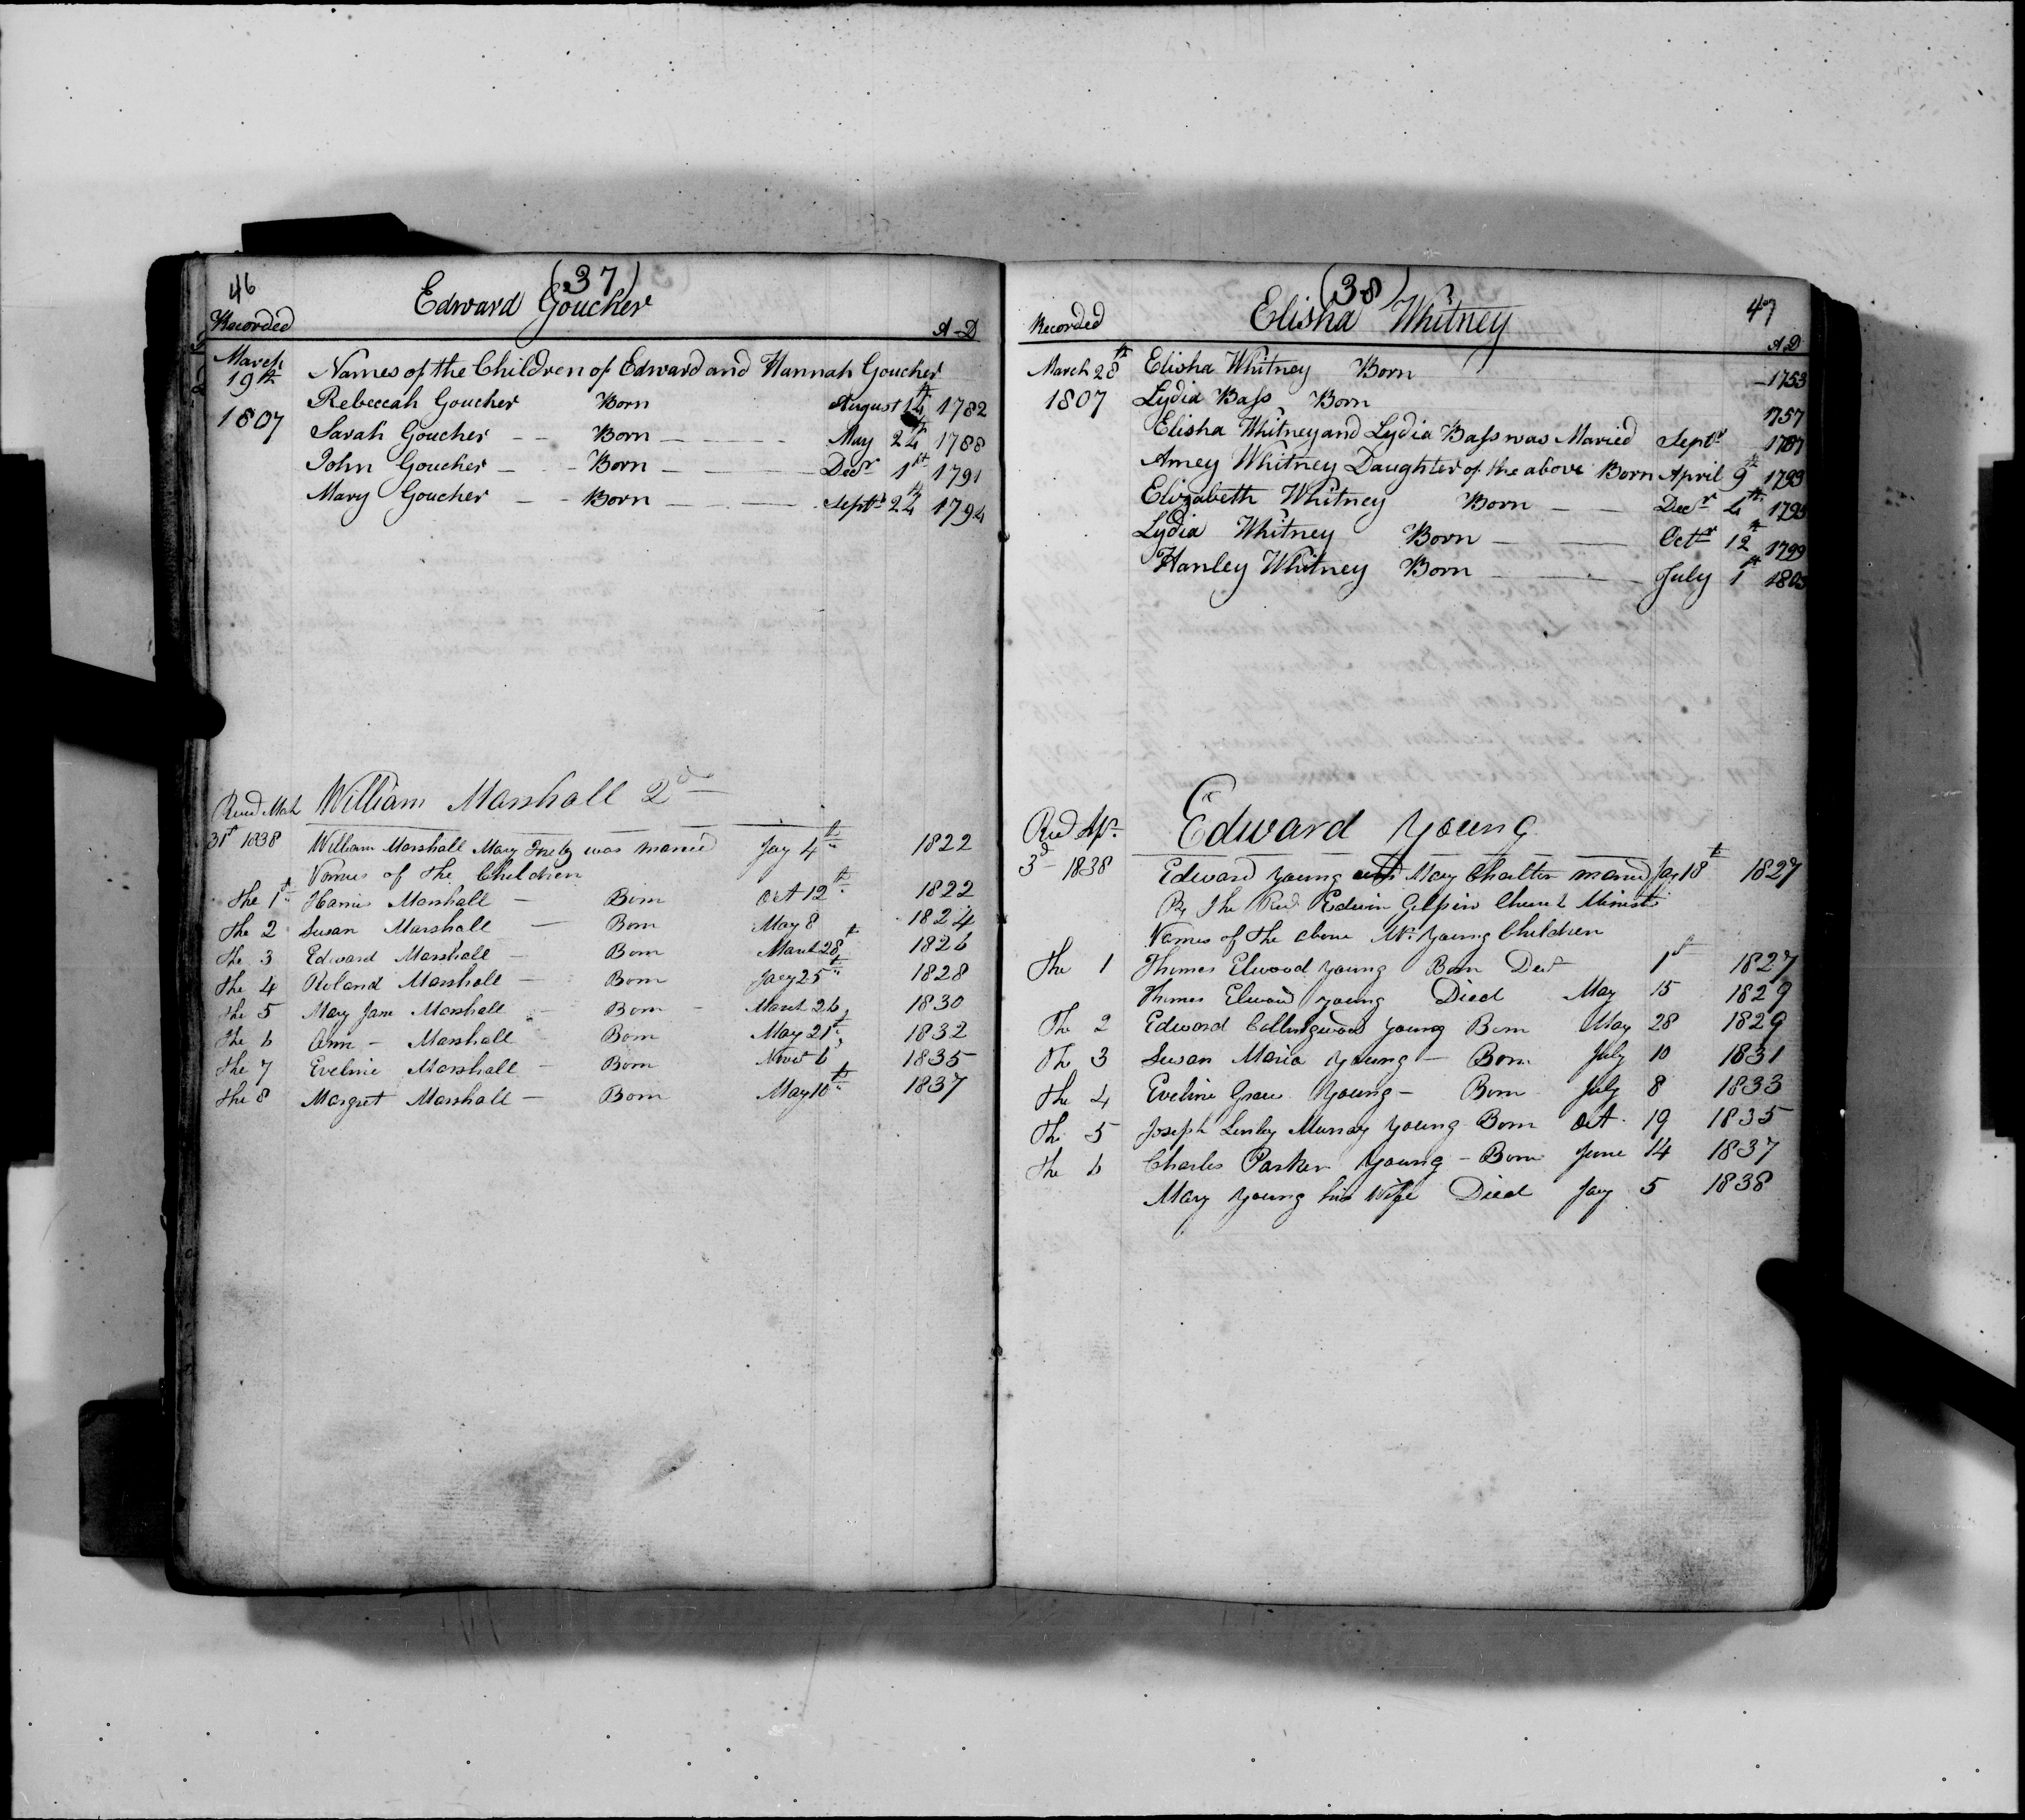 46
(37)
Edward Goucher
Recorded A-D
March 19th 1807
Names of the Children of Edward and Hannah Goucher
Rebeccah Goucher Born August 14th 1782
Sarah Goucher - - Born - - - - May 24th 1788
John Goucher - - Born - - - Decr 1st 1791
Mary Goucher - - Born - - - Septr 24th 1794
Recd Mch William Marshall 2d
31st 1838 William Marshall Mary was maried Jay 4th 1822
Names of the Children
The 1st Harris Marshall - Born Oct 12th 1822
The 2 Susan Marshall - Born May 8 1824
The 3 Edward Marshall - Born March 28th 1826
The 4 Roland Marshall - Born Jay 25th 1828
The 5 Mary Jane Marshall - Born - March 26, 1830
The 6 Ann - Marshall Born May 21st, 1832
The 7 Eveline Marshall - Born Novr 6 1835
The 8 Margret Marshall - Born May 10th 1837
(38)
47
Elisha Whitney
Recorded A.D
March 28th 1807
Elisha Whitney Born - 1753
Lydia Bass Born 1757
Elisha Whitney and Lydia Bass was Maried Septr 1787
Amey Whitney Daughter of the above Born April 9th 1793
Elizabeth Whitney Born - - Decr 4th 1795
Lydia Whitney Born - - Octr 12th 1799
Hanley Whitney Born - - July 1st 1803
Recd Apr. Edward Young
3d 1838 Edward Young and Mary Charlton maried Jay 18th 1827
By The Revd Edwin Gilpin Church Minister
Names of the above Mr. Young Children
The 1 Thomas Elwood Young Born Decr 1st 1827
Thomas Elwood Young Died May 15 1829
The 2 Edward Collingwood Young Born May 28 1829
The 3 Susan Maria Young - Born July 10 1831
The 4 Eveline Grace Young - Born July 8 1833
The 5 Joseph Murray Young Born Oct. 19 1835
The 6 Charles Parker Young - Born June 14 1837
Mary Young his Wife Died Jay 5 1838